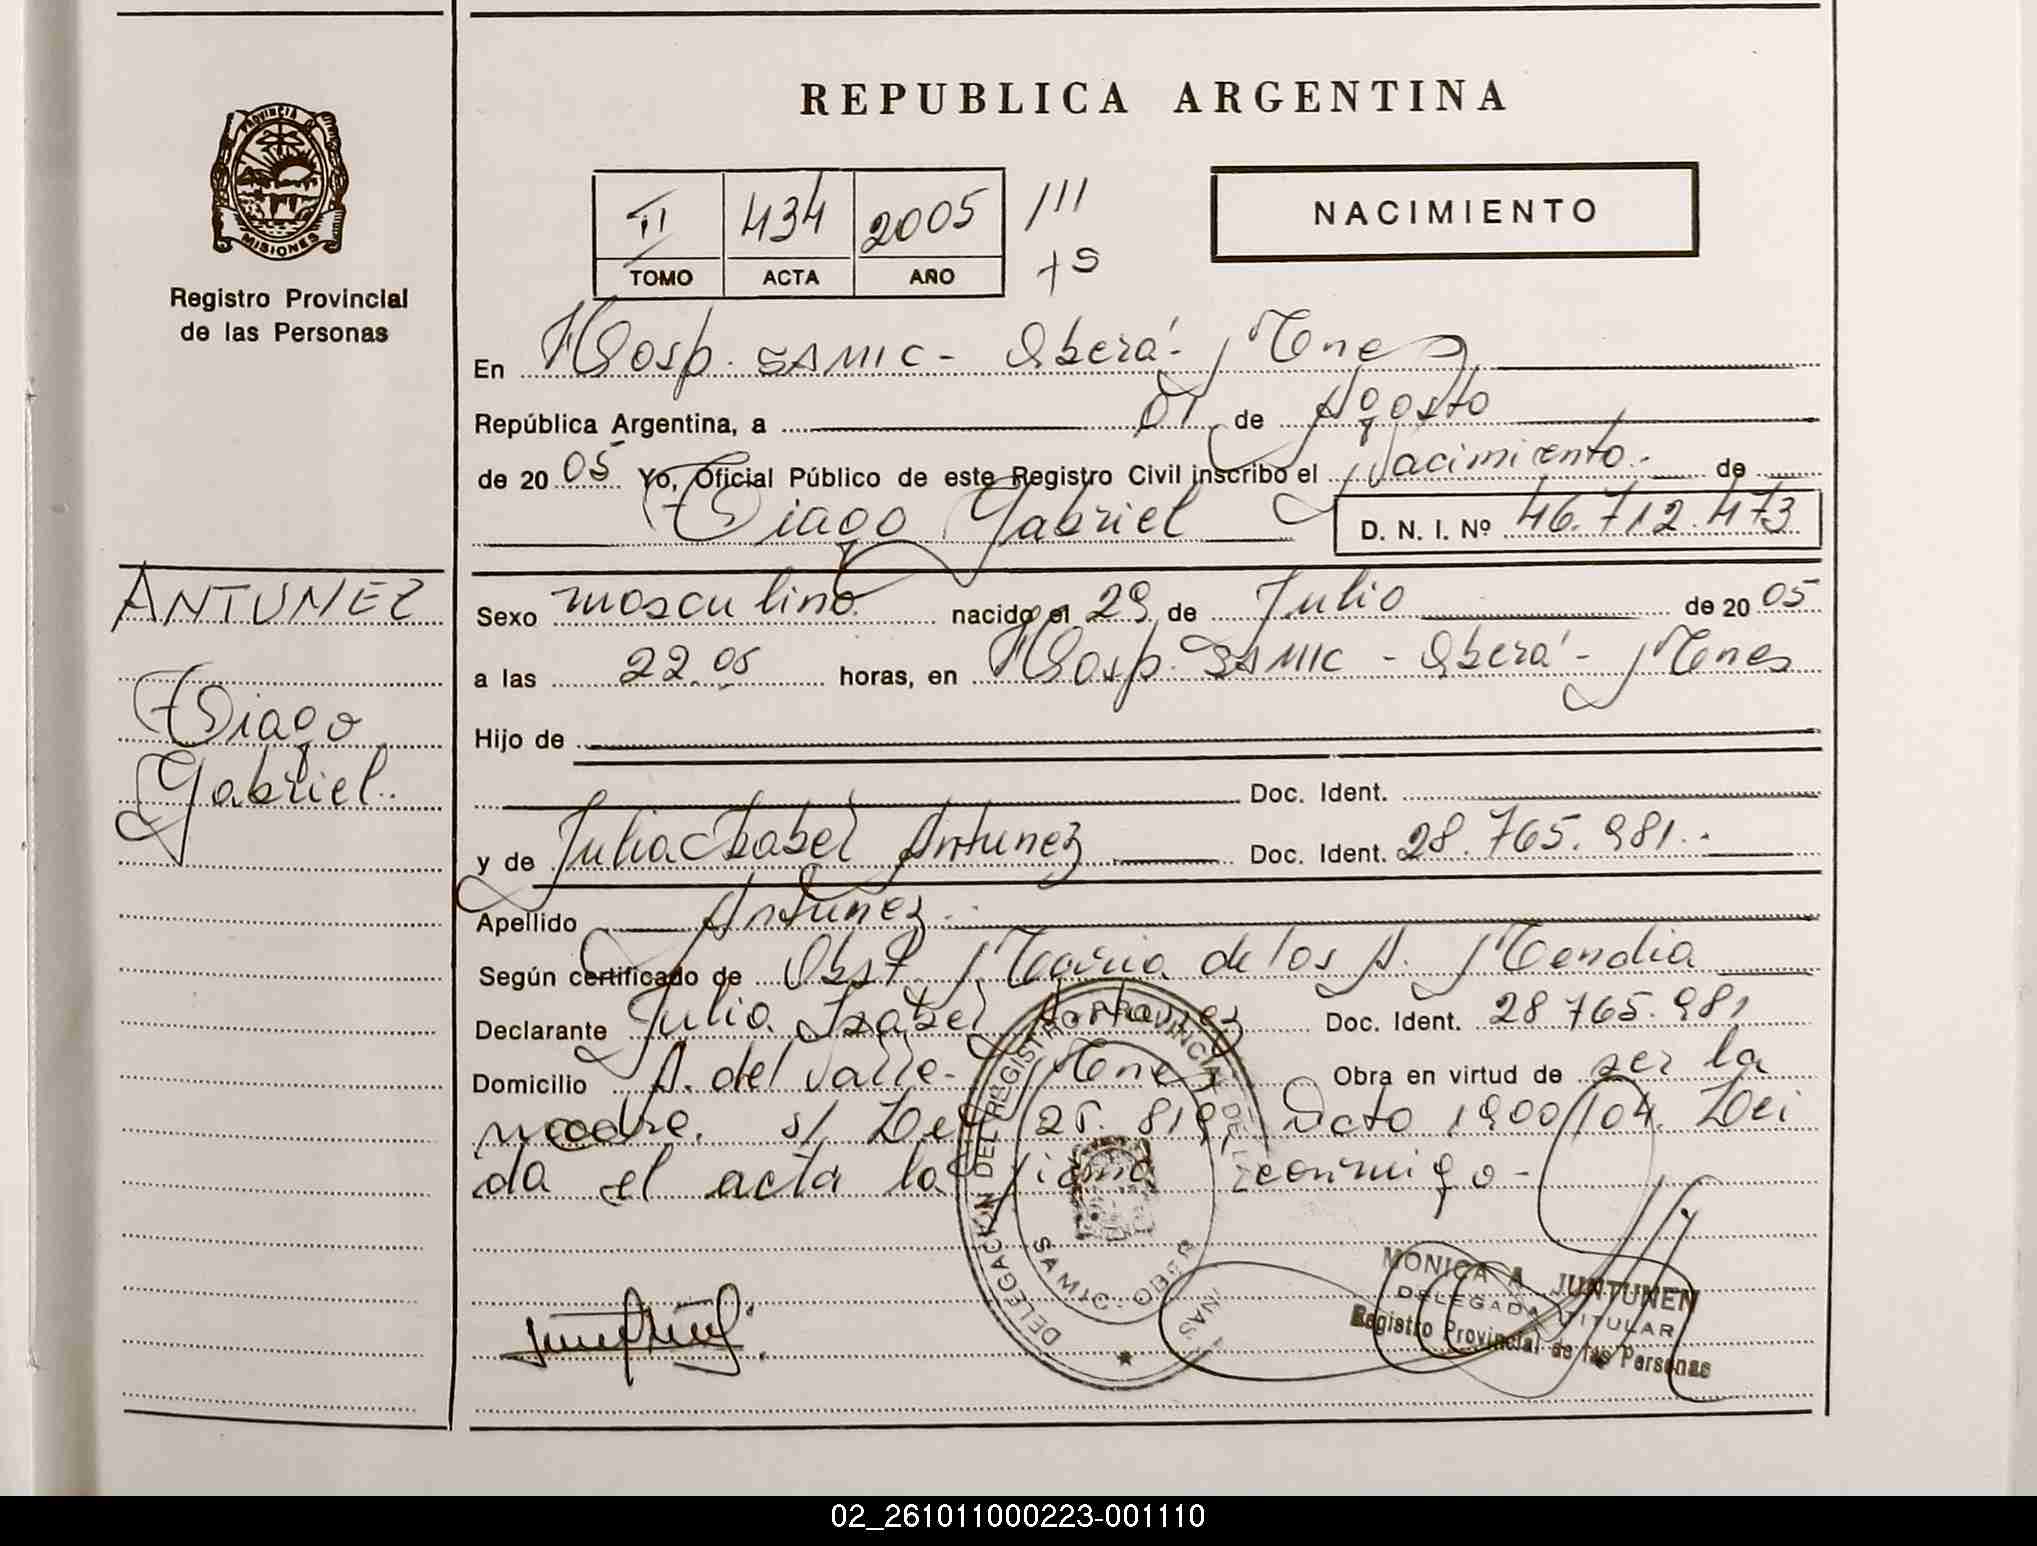 REPUBLICA ARGENTINA
PROVINCIA DE
MISIONES
Registro Provincial
de las Personas
II 434 2005 ///
TOMO ACTA AÑO +S
NACIMIENTO
En Hosp. SAMIC - Oberá - Mnes
República Argentina, a 01 de Agosto
de 20 05 Yo, Oficial Público de este Registro Civil inscribo el Nacimiento.- de
Diago Gabriel D. N. I. Nº 46.712.473
ANTUNEZ
Diago
Gabriel.
Sexo masculino nacido el 29 de Julio de 20 05
a las 22.05 horas, en Hosp. SAMIC - Oberá - Mnes
Hijo de
Doc. Ident.
y de Julia Izabel Antunez Doc. Ident. 28.765.981.-
Apellido Antunez.-
Según certificado de Obst. Maria de los A. Mendia
Declarante Julia Izabel Antunez Doc. Ident. 28 765.981
Domicilio A. del Valle - Mnes Obra en virtud de ser la
madre. s/ Ley 25.819, Dcto 1900/04. Lei
da el acta la firma conmigo-
DELEGACION DEL REGISTRO PROVINCIAL DE LAS
SAMIC - OBERA
MONICA A JUNTUNEN
DELEGADA TITULAR
Registro Provincial de las Personas
02_261011000223-001110